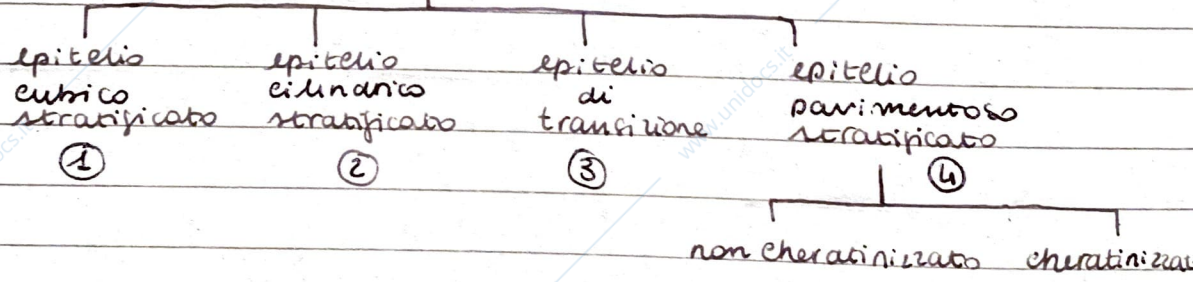 epitelio
cubico
stratificato
1
epitelio
cilindrico
stratificato
2
epitelio
di
transizione
3
epitelio
pavimentoso
stratificato
4
non cheratinizzato cheratinizzat
www.unidocs.it
ocs.it